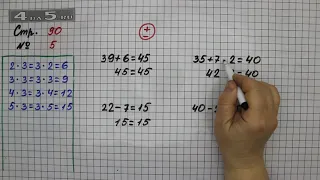 4 ДА 5.RU
Стр. 90
№ 5
+
-
2 · 3 = 3 · 2 = 6
3 · 3 = 3 · 3 = 9
4 · 3 = 3 · 4 = 12
5 · 3 = 3 · 5 = 15
39 + 6 = 45
45 = 45
22 - 7 = 15
15 = 15
35 + 7 - 2 = 40
42 = 40
40 -